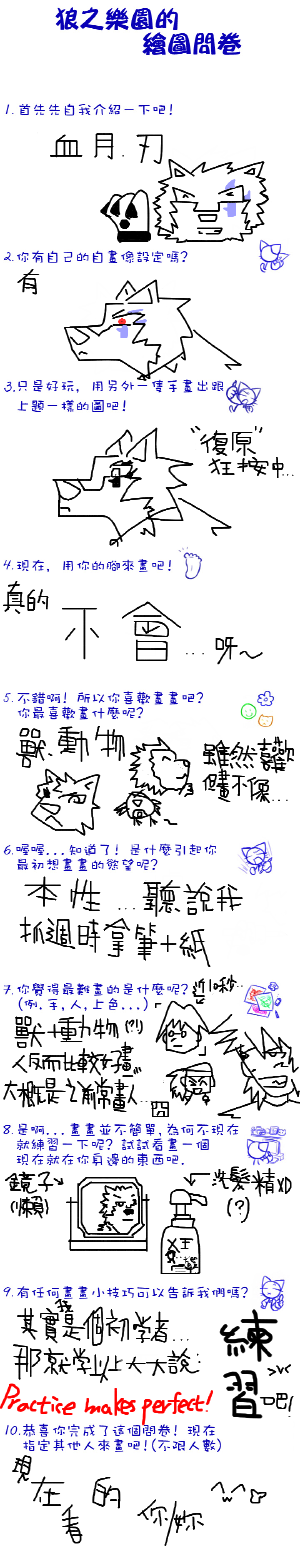 狼之樂園的
繪圖問卷
1.首先先自我介紹一下吧!
血月.刃
2.你有自己的自畫像設定嗎?
有
3.只是好玩, 用另外一隻手畫出跟
上題一樣的圖吧!
"復原"
狂按中...
4.現在, 用你的腳來畫吧!
真的
不會...呀~
5.不錯啊! 所以你喜歡畫畫吧?
你最喜歡畫什麼呢?
獸.動物
雖然喜歡
畫不像...
6.喔喔...知道了! 是什麼引起你
最初想畫畫的慾望呢?
本性...聽說我
抓週時拿筆+紙
7.你覺得最難畫的是什麼呢?
(例.手,人,上色...)
近10秒...
獸+動物(?!)
人反而比較好畫
大概是之前常畫人...囧
8.是啊...畫畫並不簡單,為何不現在
就練習一下呢? 試試看畫一個
現在就在你身邊的東西吧.
鏡子
(懶)
洗髮精
(?)
9.有任何畫畫小技巧可以告訴我們嗎?
其實我是個初學者...
那就學以上大大說:
Practice makes perfect!
練習吧!
10.恭喜你完成了這個問卷! 現在
指定其他人來畫吧!(不限人數)
現在看的你/妳